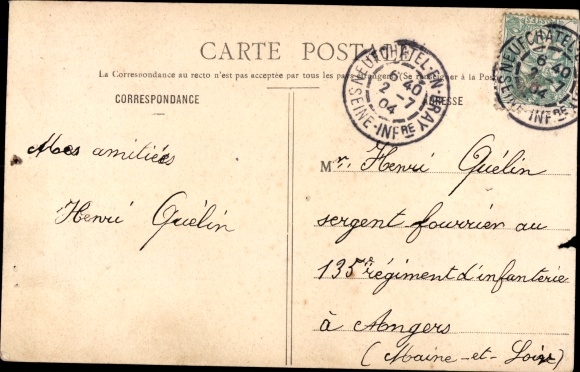 CARTE POSTALE
La Correspondance au recto n'est pas acceptée par tous les pays étrangers (Se renseigner à la Poste
CORRESPONDANCE
ADRESSE
NEUFCHATEL-EN-BRAY
6 40
2 -7
04
SEINE-INFRE
NEUFCHATEL-EN
6 40
2 -7
04
SEINE-INFRE
Mes amitiées
Henri Quélin
Mr. Henri Quélin
sergent fourrier au
135e régiment d'infanterie
à Angers
(Maine-et-Loire)